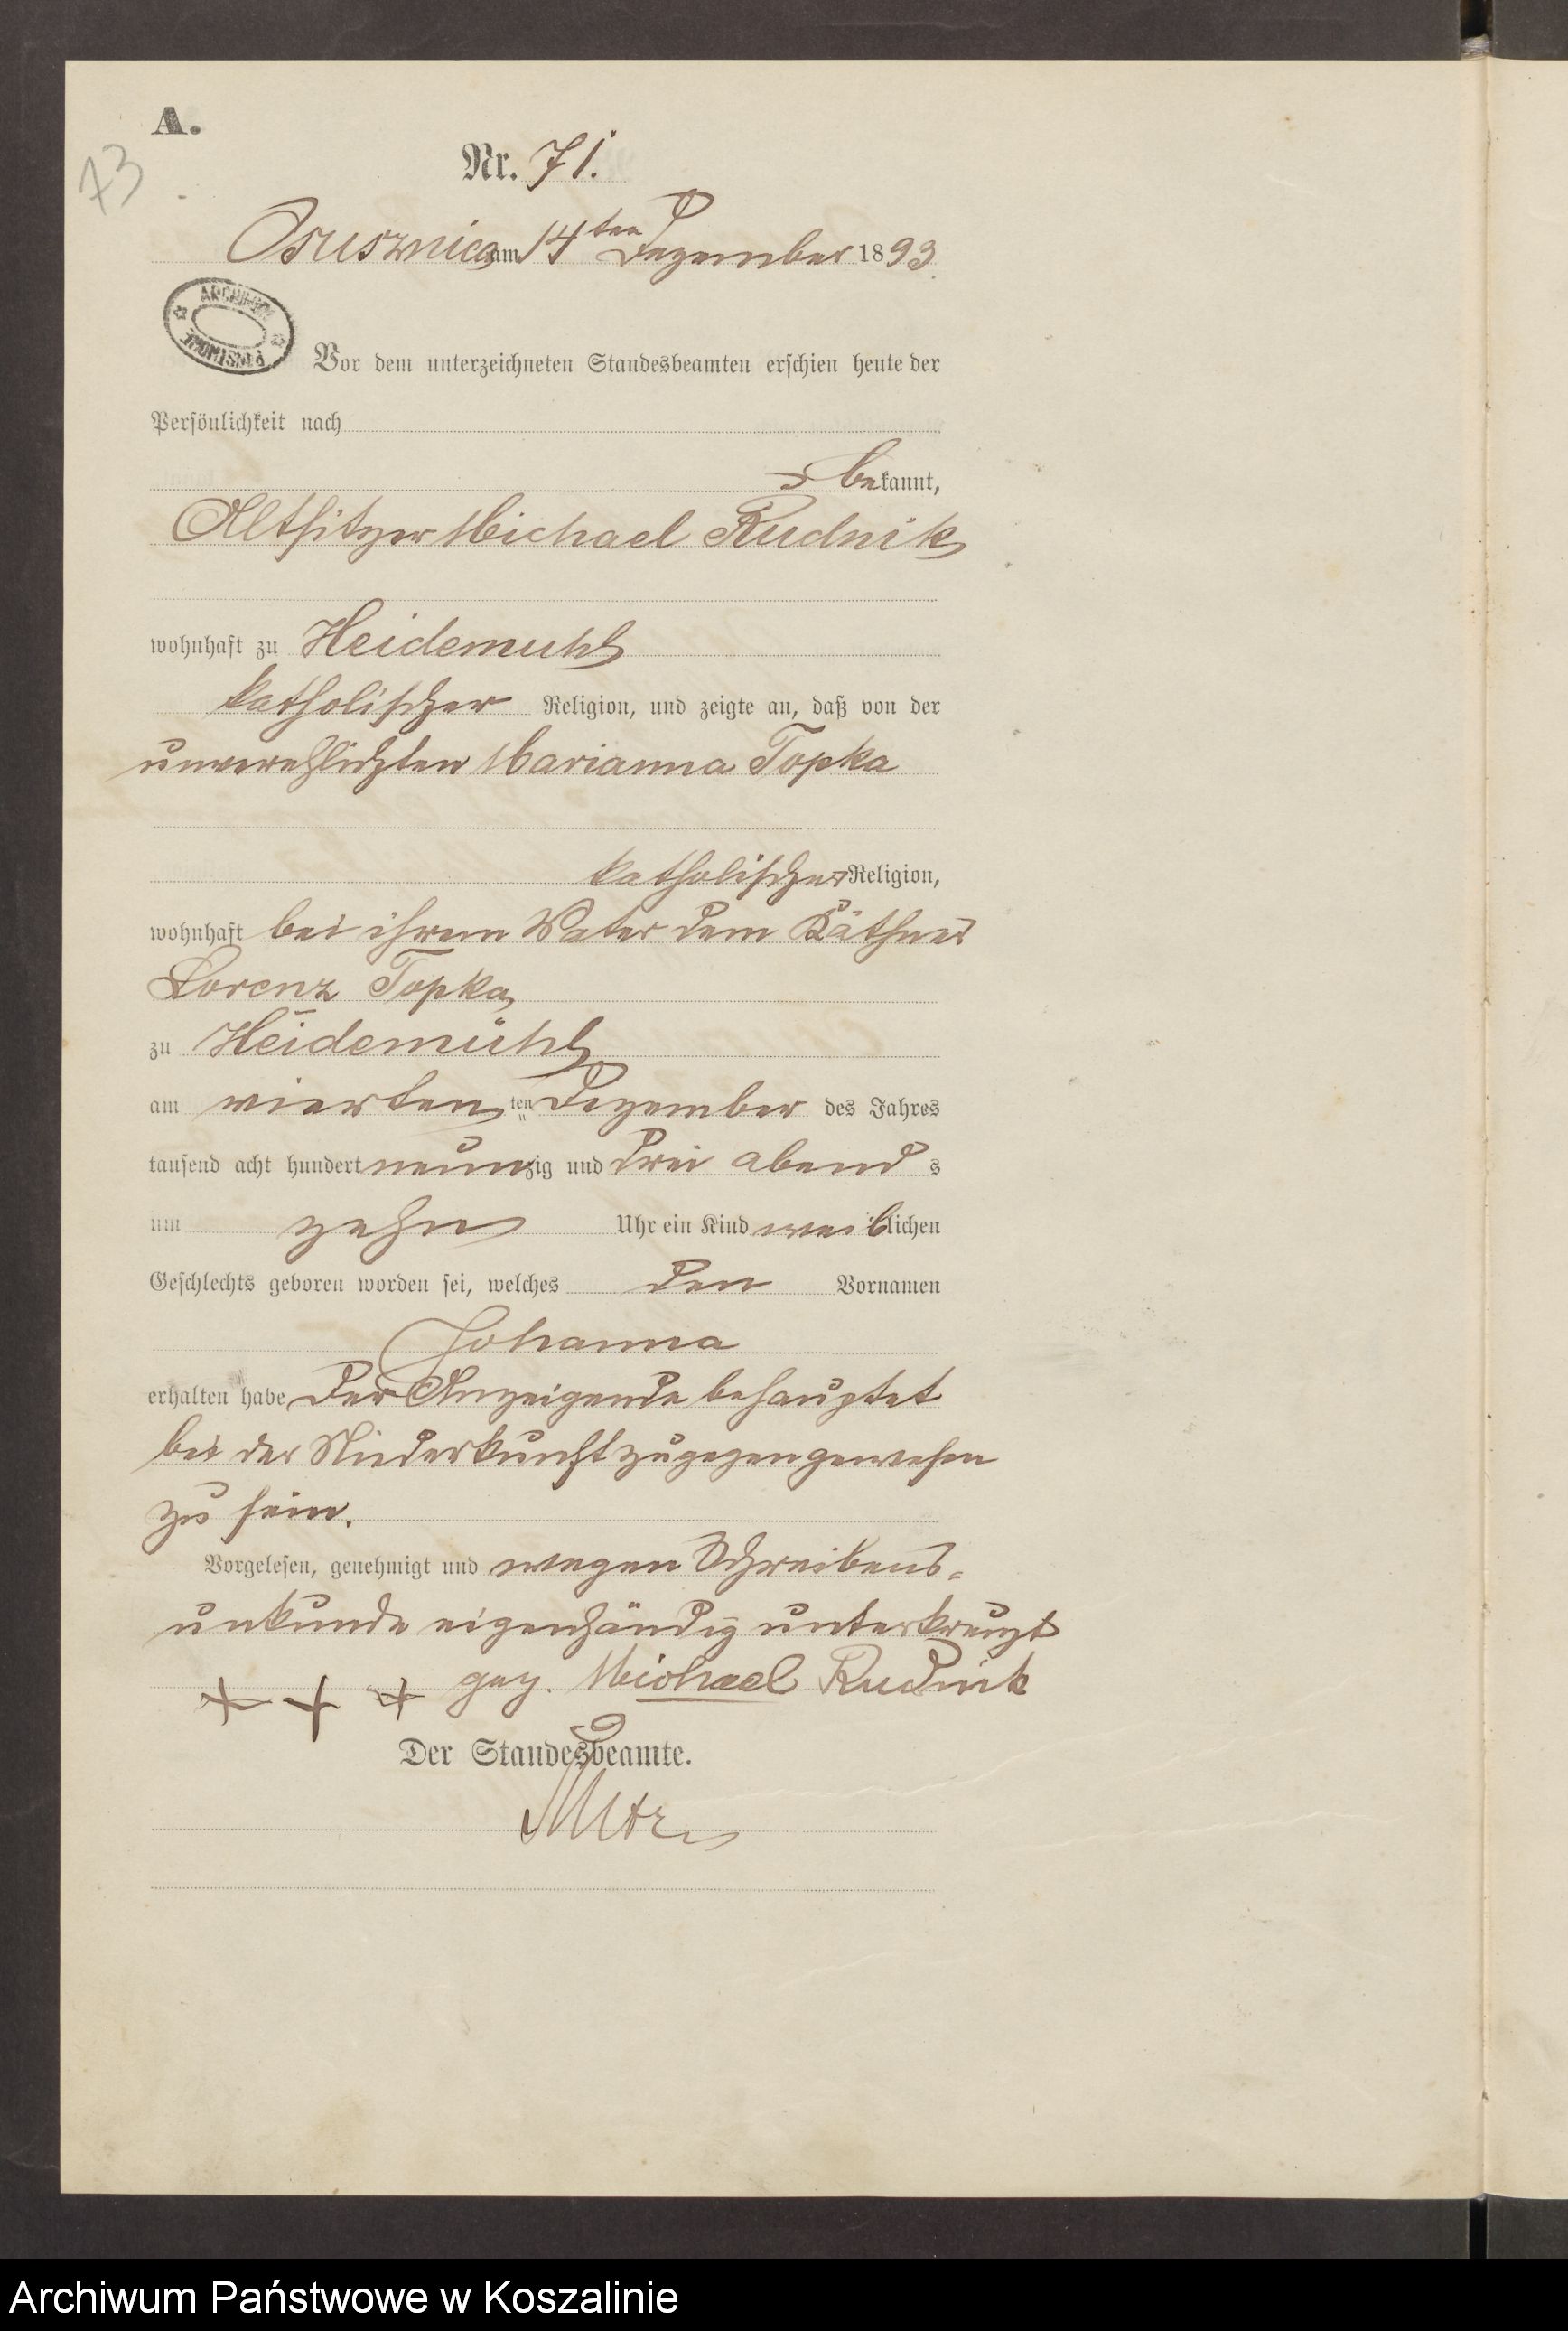 A.
73
Nr. 71.
Osusznica am 14ten Dezember 1893.
ARCHIWUM PAŃSTWOWE
Vor dem unterzeichneten Standesbeamten erschien heute der
Persönlichkeit nach
bekannt,
Altsitzer Michael Rudnik
wohnhaft zu Heidemuhl
katholischer Religion, und zeigte an, daß von der
unverehlichten Marianna Topka
katholischer Religion,
wohnhaft bei ihrem Vater dem Käthner
Lorenz Topka,
zu Heidemühl
am vierten ten Dezember des Jahres
tausend acht hundert neunzig und drei abends
um zehn Uhr ein Kind weiblichen
Geschlechts geboren worden sei, welches den Vornamen
Johanna
erhalten habe Der Anzeigende behauptet
bei der Niederkunft zugegen gewesen
zu sein.
Vorgelesen, genehmigt und wegen Schreibens-
unkunde eigenhändig unterkreuzt
+ + + gez. Michael Rudnik
Der Standesbeamte.
Archiwum Państwowe w Koszalinie